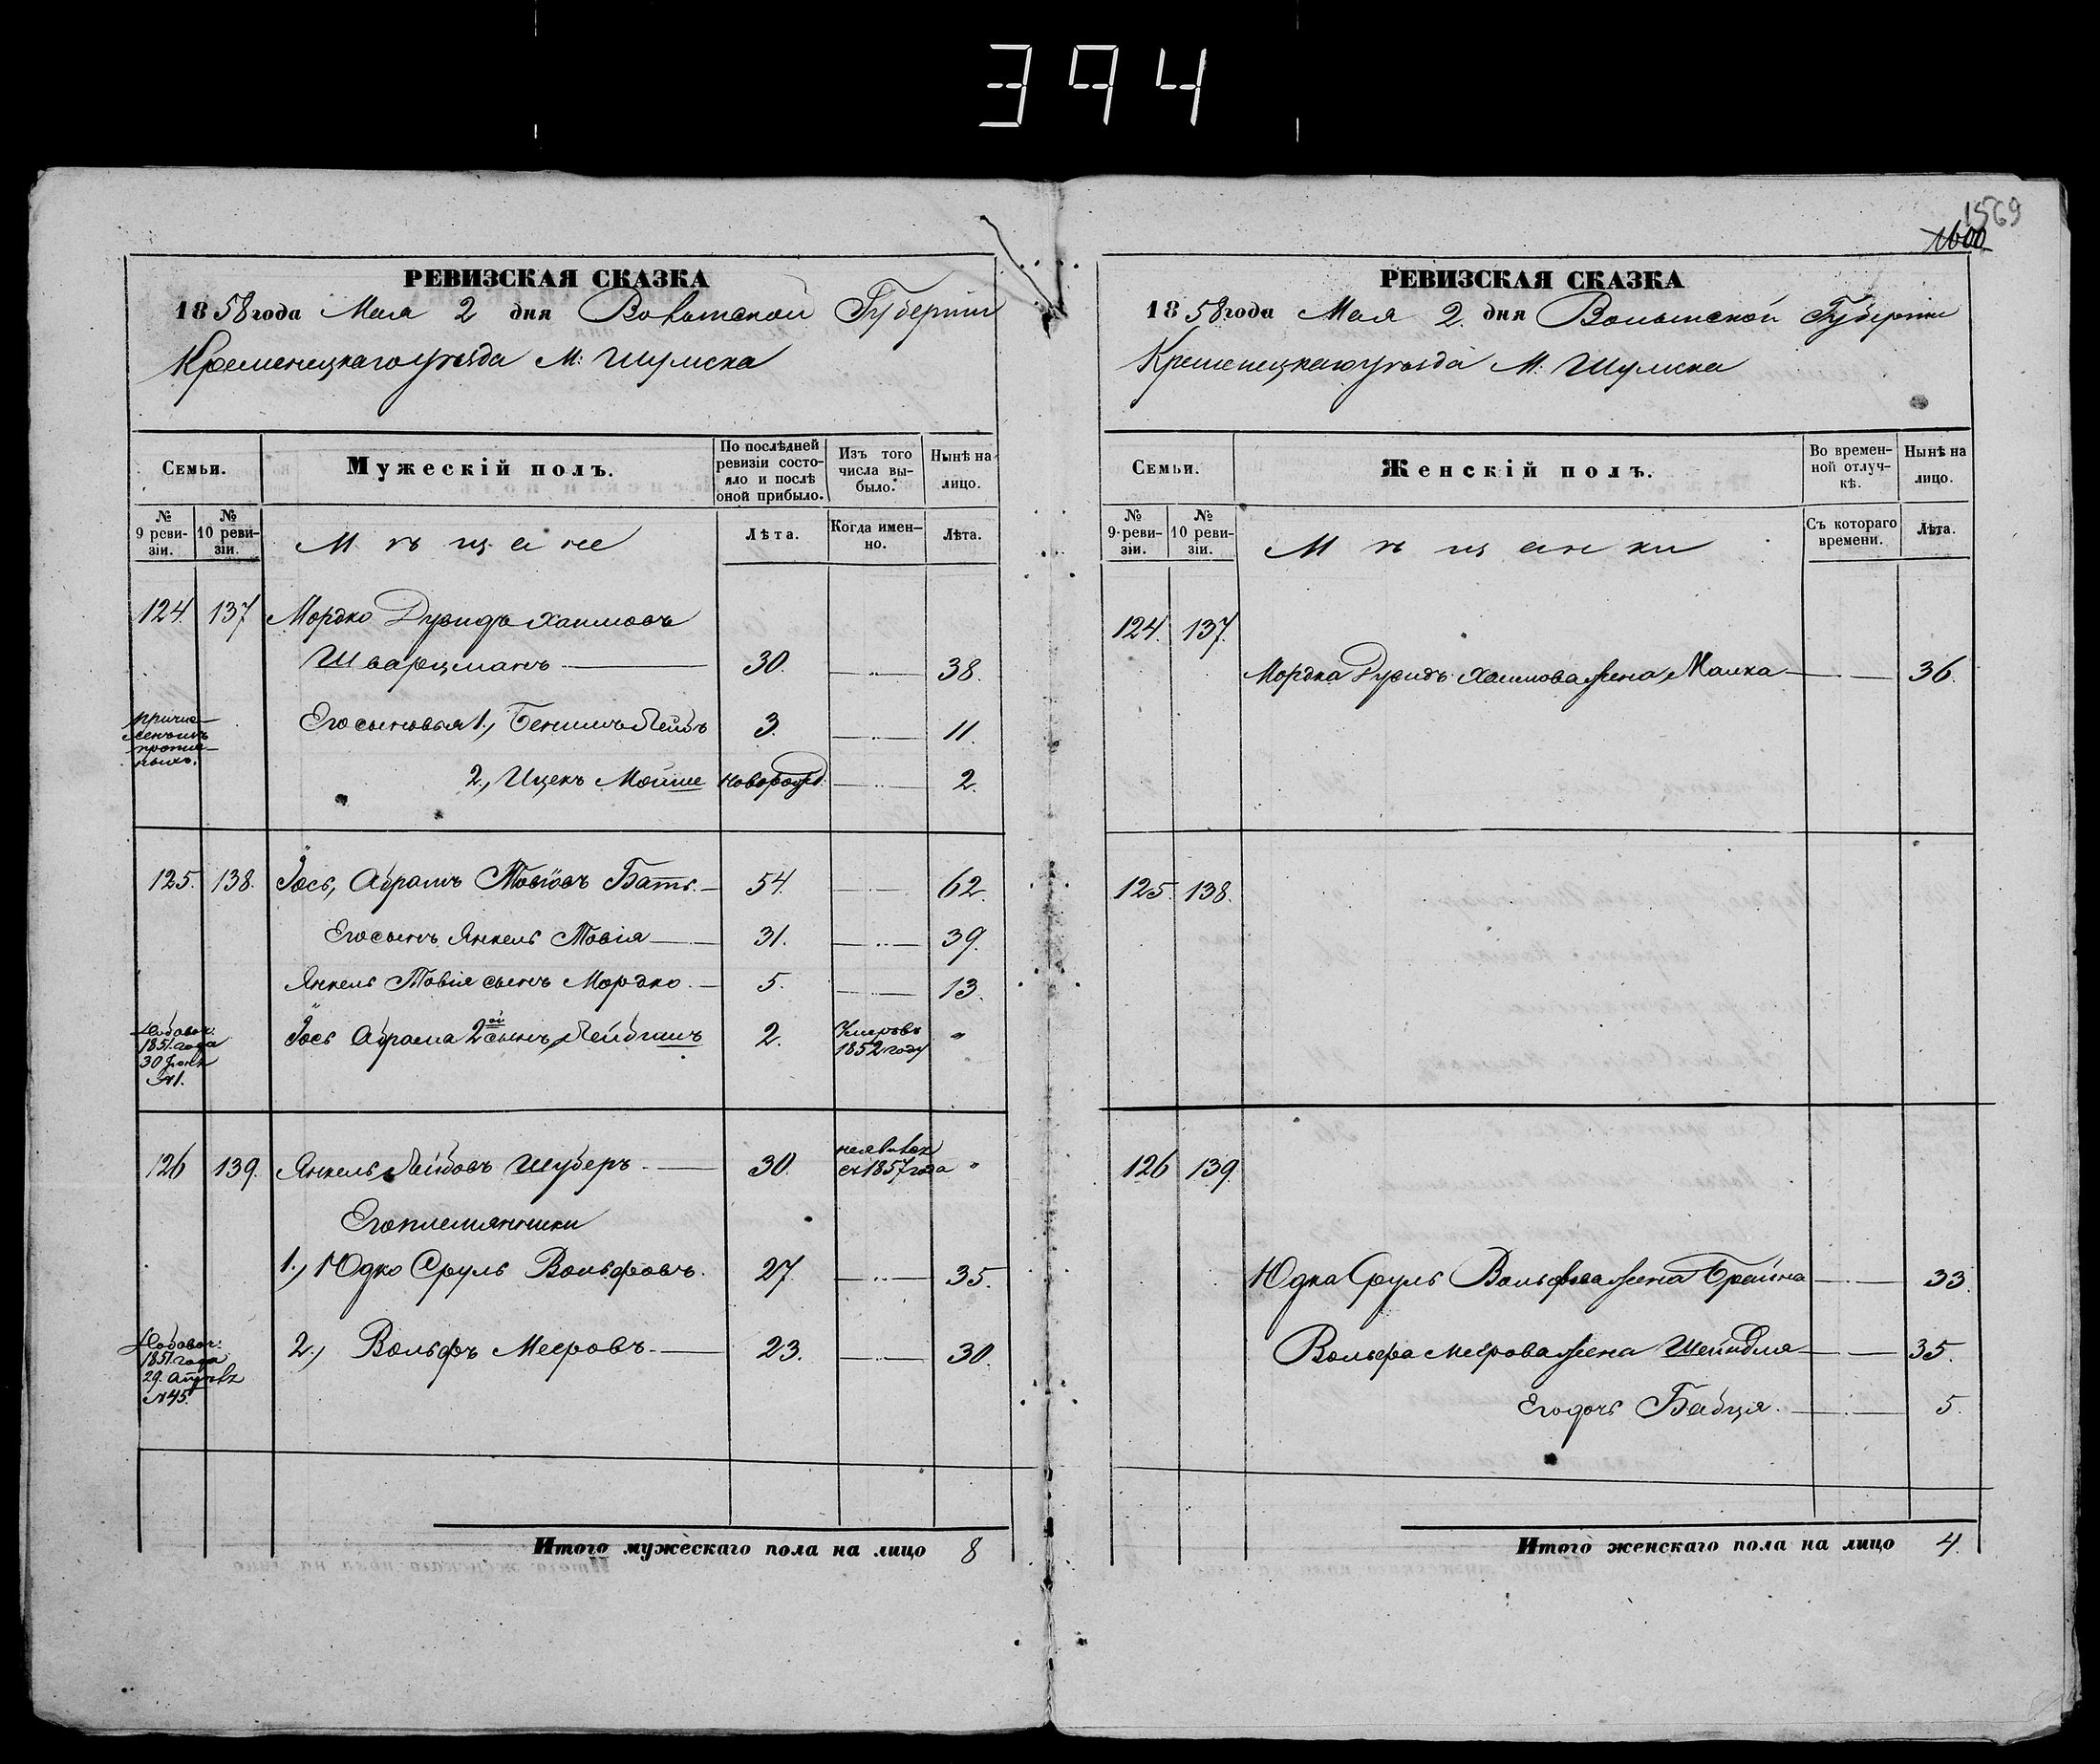 394
1569
1600
РЕВИЗСКАЯ СКАЗКА
1858 года Мая 2 дня Волынской Губернии
Кременецкаго уѣзда М: Шумска
Семьи.
Мужескій полъ.
По послѣдней ревизіи состояло и послѣ оной прибыло.
Изъ того числа выбыло.
Нынѣ на лицо.
№ 9 ревизіи.
№ 10 ревизіи.
Мѣщане
Лѣта.
Когда именно.
Лѣта.
124. 137 Мордко Дувидъ Хаимовъ
Шварцманъ 30. 38.
Его сыновья 1., Бенишъ Лейбъ 3. 11
2., Ицекъ Мойше новорожд. 2.
125. 138. Іось, Абрамъ Товіовъ Батъ. 54. 62.
Его сынъ Янкель Товія 31. 39.
Янкель Товіи сынъ Мордко. 5. 13.
Добавоч: 1851 года 30 Іюня №1.
Іось Абрама 2ой сынъ, Лейбишъ 2. Умеръ въ 1852 году "
126 139. Янкель Лейбовъ Шуберъ. 30. съ 1857 года "
Его племянники
1., Юдко Сруль Вольфовъ. 27. 35.
Добавоч: 1851 года 29. Апрѣля №45.
2., Вольфъ Мееровъ. 23. 30.
Итого мужескаго пола на лицо 8
РЕВИЗСКАЯ СКАЗКА
1858 года Мая 2. дня Волынской Губернии
Кременецкаго уѣзда М: Шумска
Семьи.
Женскій полъ.
Во временной отлучкѣ.
Нынѣ на лицо.
№ 9 ревизіи.
№ 10 ревизіи.
Мѣщанки
Съ котораго времени.
Лѣта.
124. 137.
Мордка Дувидъ Хаимова жена Малка 36.
125. 138.
126 139.
Юдка Сруль Вольфова жена Брайна 33.
Вольфа Меерова жена Шейндля 35.
Его дочь Бабця. 5.
Итого женскаго пола на лицо 4.